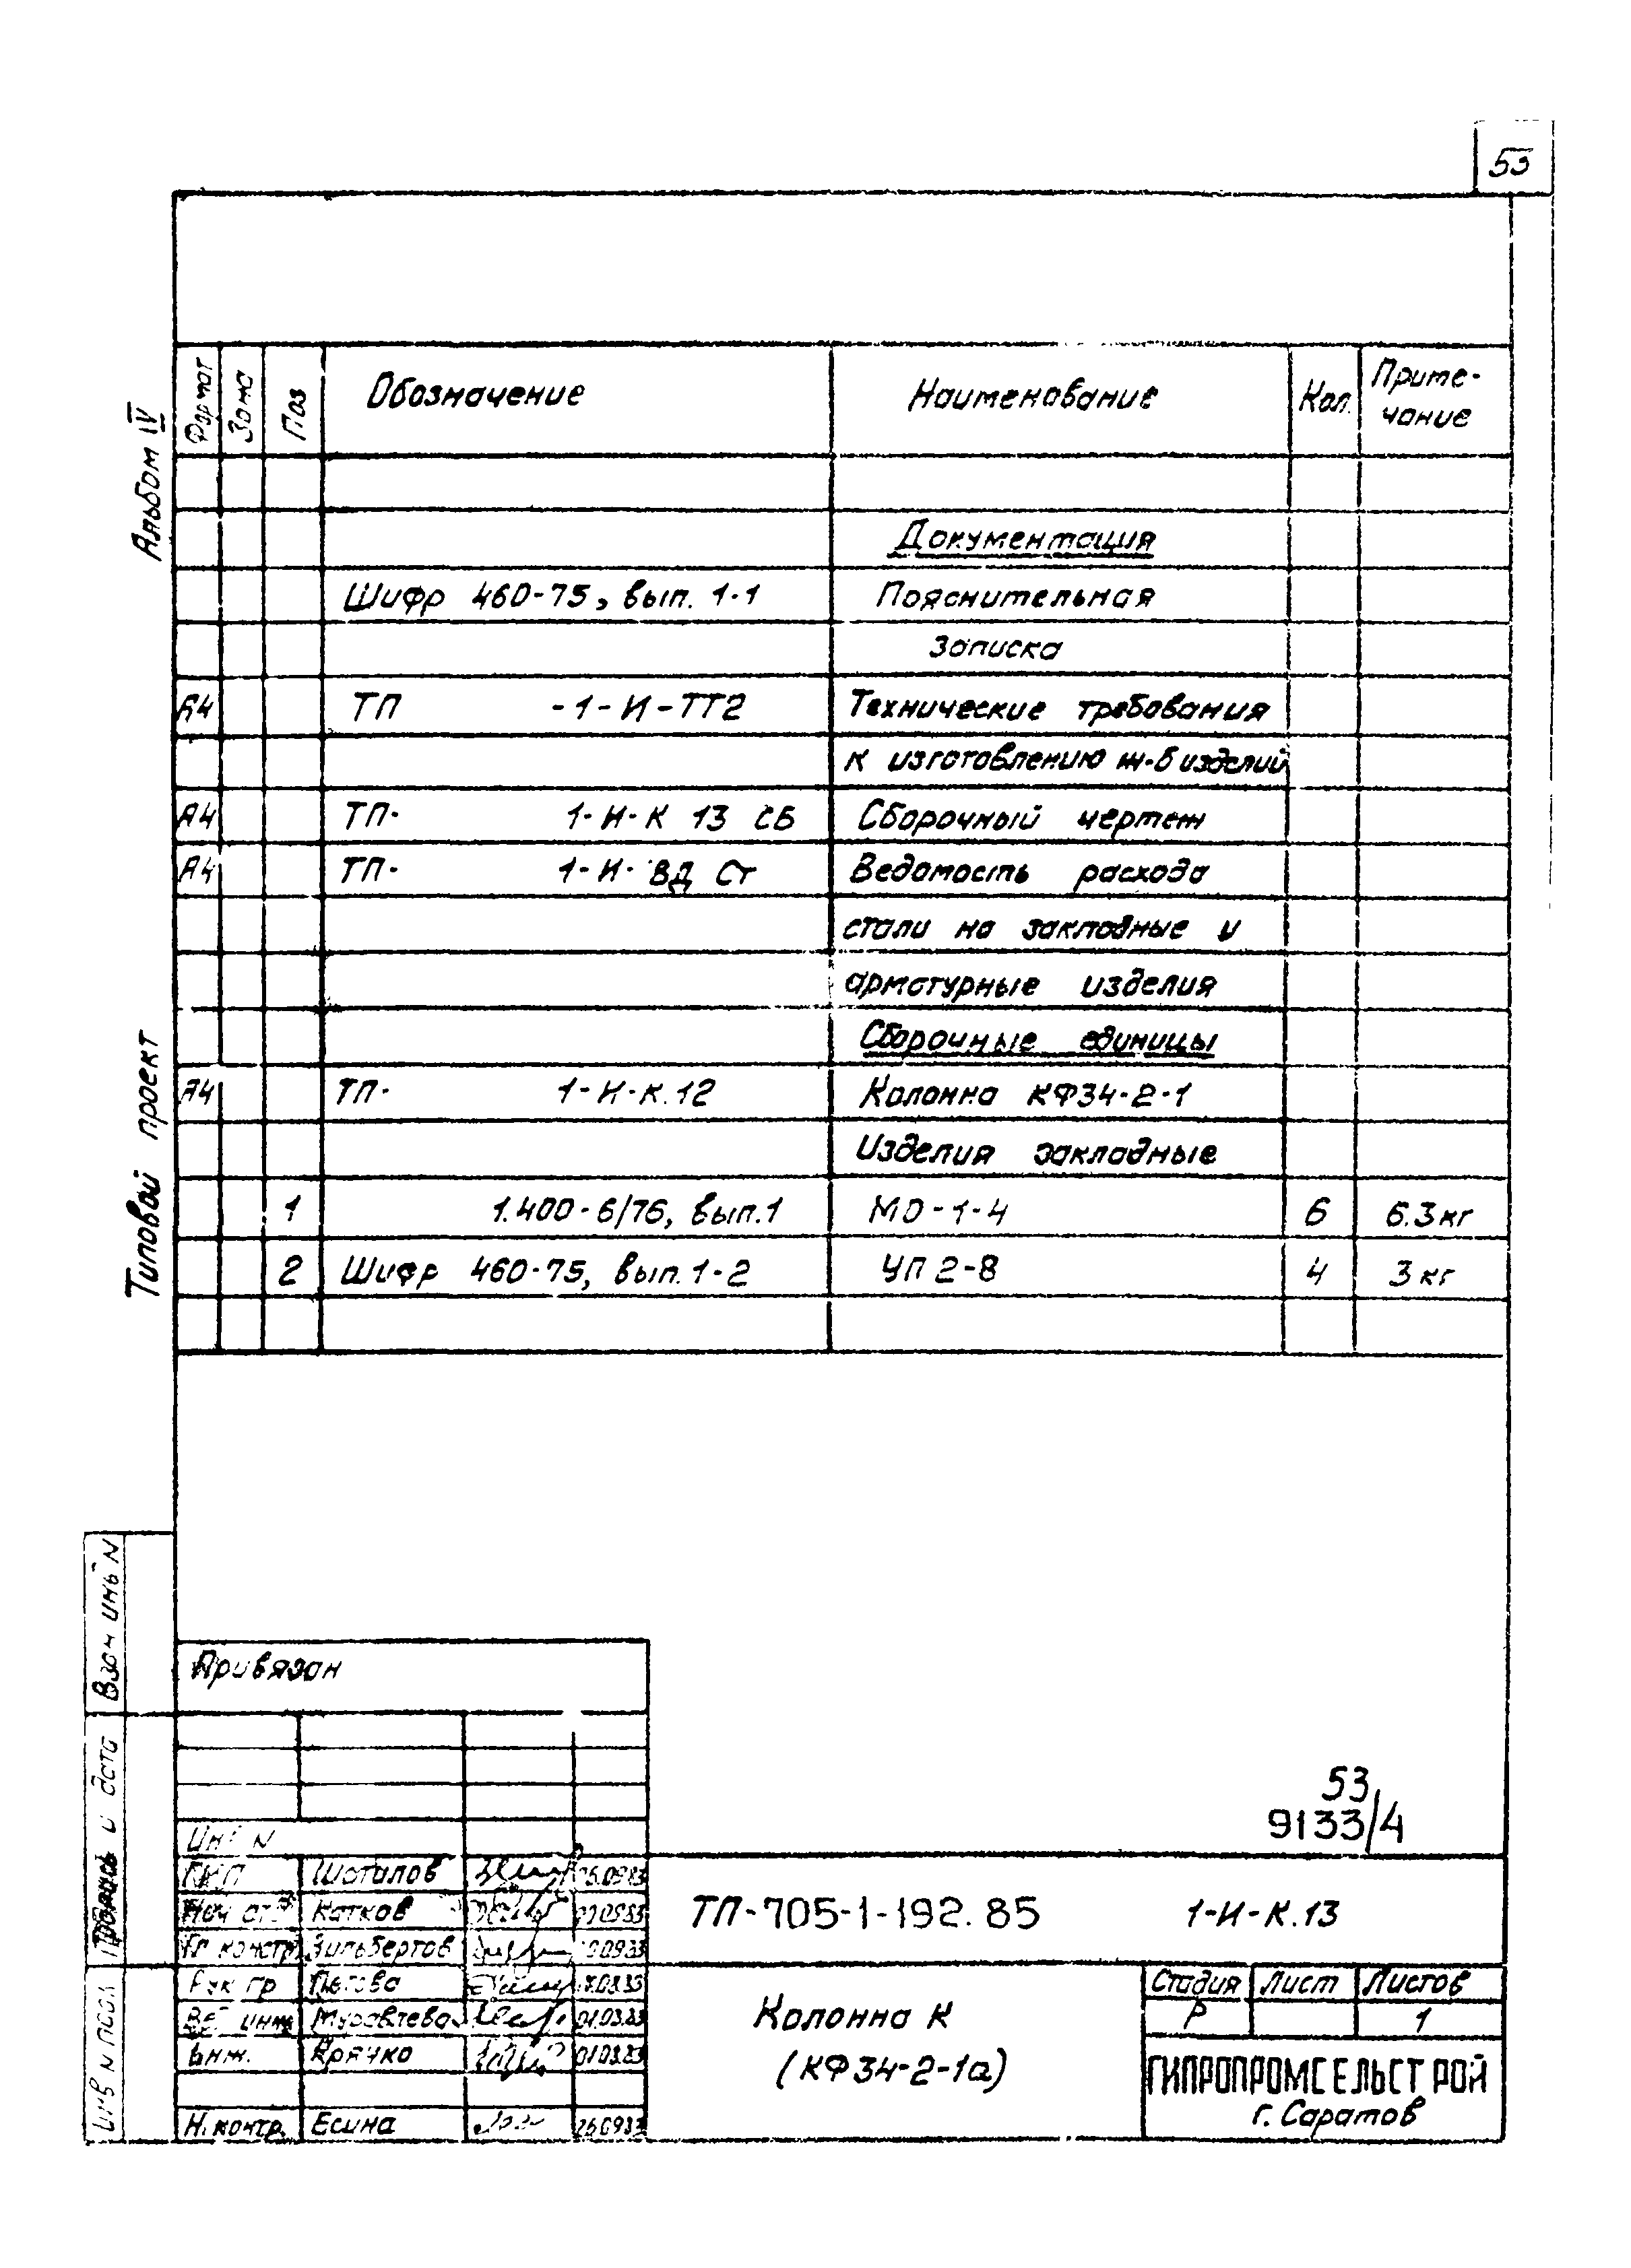 53
Альбом IV
Типовой проект
Формат Зона Поз Обозначение Наименование Кол. Приме-
чание
Документация
Шифр 460-75, вып. 1-1 Пояснительная
записка
А4 ТП -1-И-ТТ2 Технические требования
к изготовлению ж-б изделий
А4 ТП- 1-И-К 13 СБ Сборочный чертеж
А4 ТП- 1-И-ВД Ст Ведомость расхода
стали на закладные и
арматурные изделия
Сборочные единицы
А4 ТП- 1-И-К.12 Колонна КФ34-2-1
Изделия закладные
1 1.400-6/76, вып.1 МО-1-4 6 6.3кг
2 Шифр 460-75, вып. 1-2 УП 2-8 4 3кг
Взам инв N
Подпись и дата
Инв N подл
Привязан
53
9133/4
Инв N
ГИП Шаталов 26.0983
Нач отд Катков
Гл констр. Зильбертов
Рук гр
Вед инж Муравлева 01.03.83
Инж. 01.03.83
Н.контр. Есина 26.0983
ТП-705-1-192.85 1-И-К.13
Колонна К
(КФ34-2-1а)
Стадия Лист Листов
Р 1
ГИПРОПРОМСЕЛЬСТРОЙ
г. Саратов